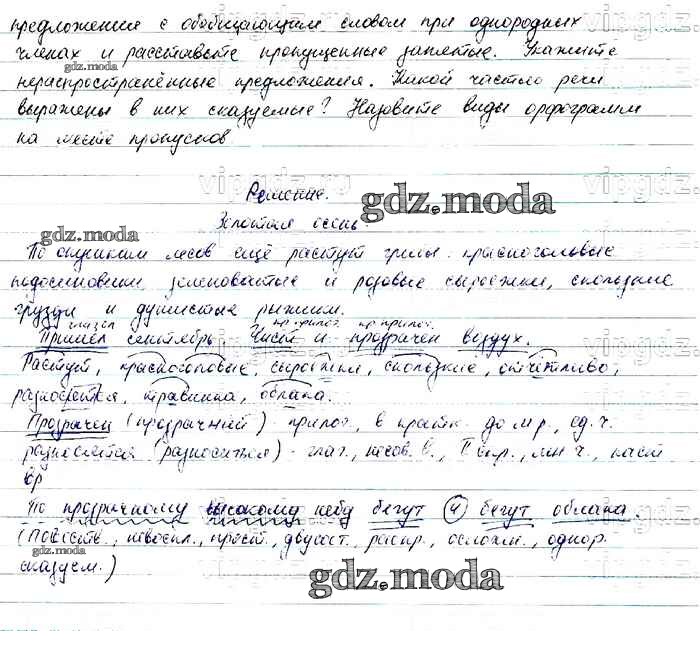 предложение с обобщающим словом при однородных
членах и расставьте пропущенные запятые. Укажите
gdz.moda
нераспространённые предложения. Какой частью речи
выражены в них сказуемые? Назовите виды орфограмм
на месте пропусков
vipgdz.ru
Решение.
gdz.moda
Золотая осень.
gdz.moda
По опушкам лесов ещё растут грибы: красноголовые
подосиновики, зеленоватые и розовые сыроежки, скользкие
грузди и душистые рыжики.
глагол кр. прилаг. кр прилаг.
Пришёл сентябрь. Чист и прозрачен воздух.
Растут, красноголовые, сыроежки, скользкие, отчётливо,
разносятся, травинка, облака.
Прозрачен (прозрачный) - прилаг., в кратк. ф м р., ед. ч.
разносятся (разноситься) - глаг., несов. в., II спр., мн ч., наст
вр
По прозрачному высокому небу бегут (4) бегут облака.
(повеств., невоскл., прост., двусост., распр., осложн., однор.
gdz.moda
сказуем.)
gdz.moda